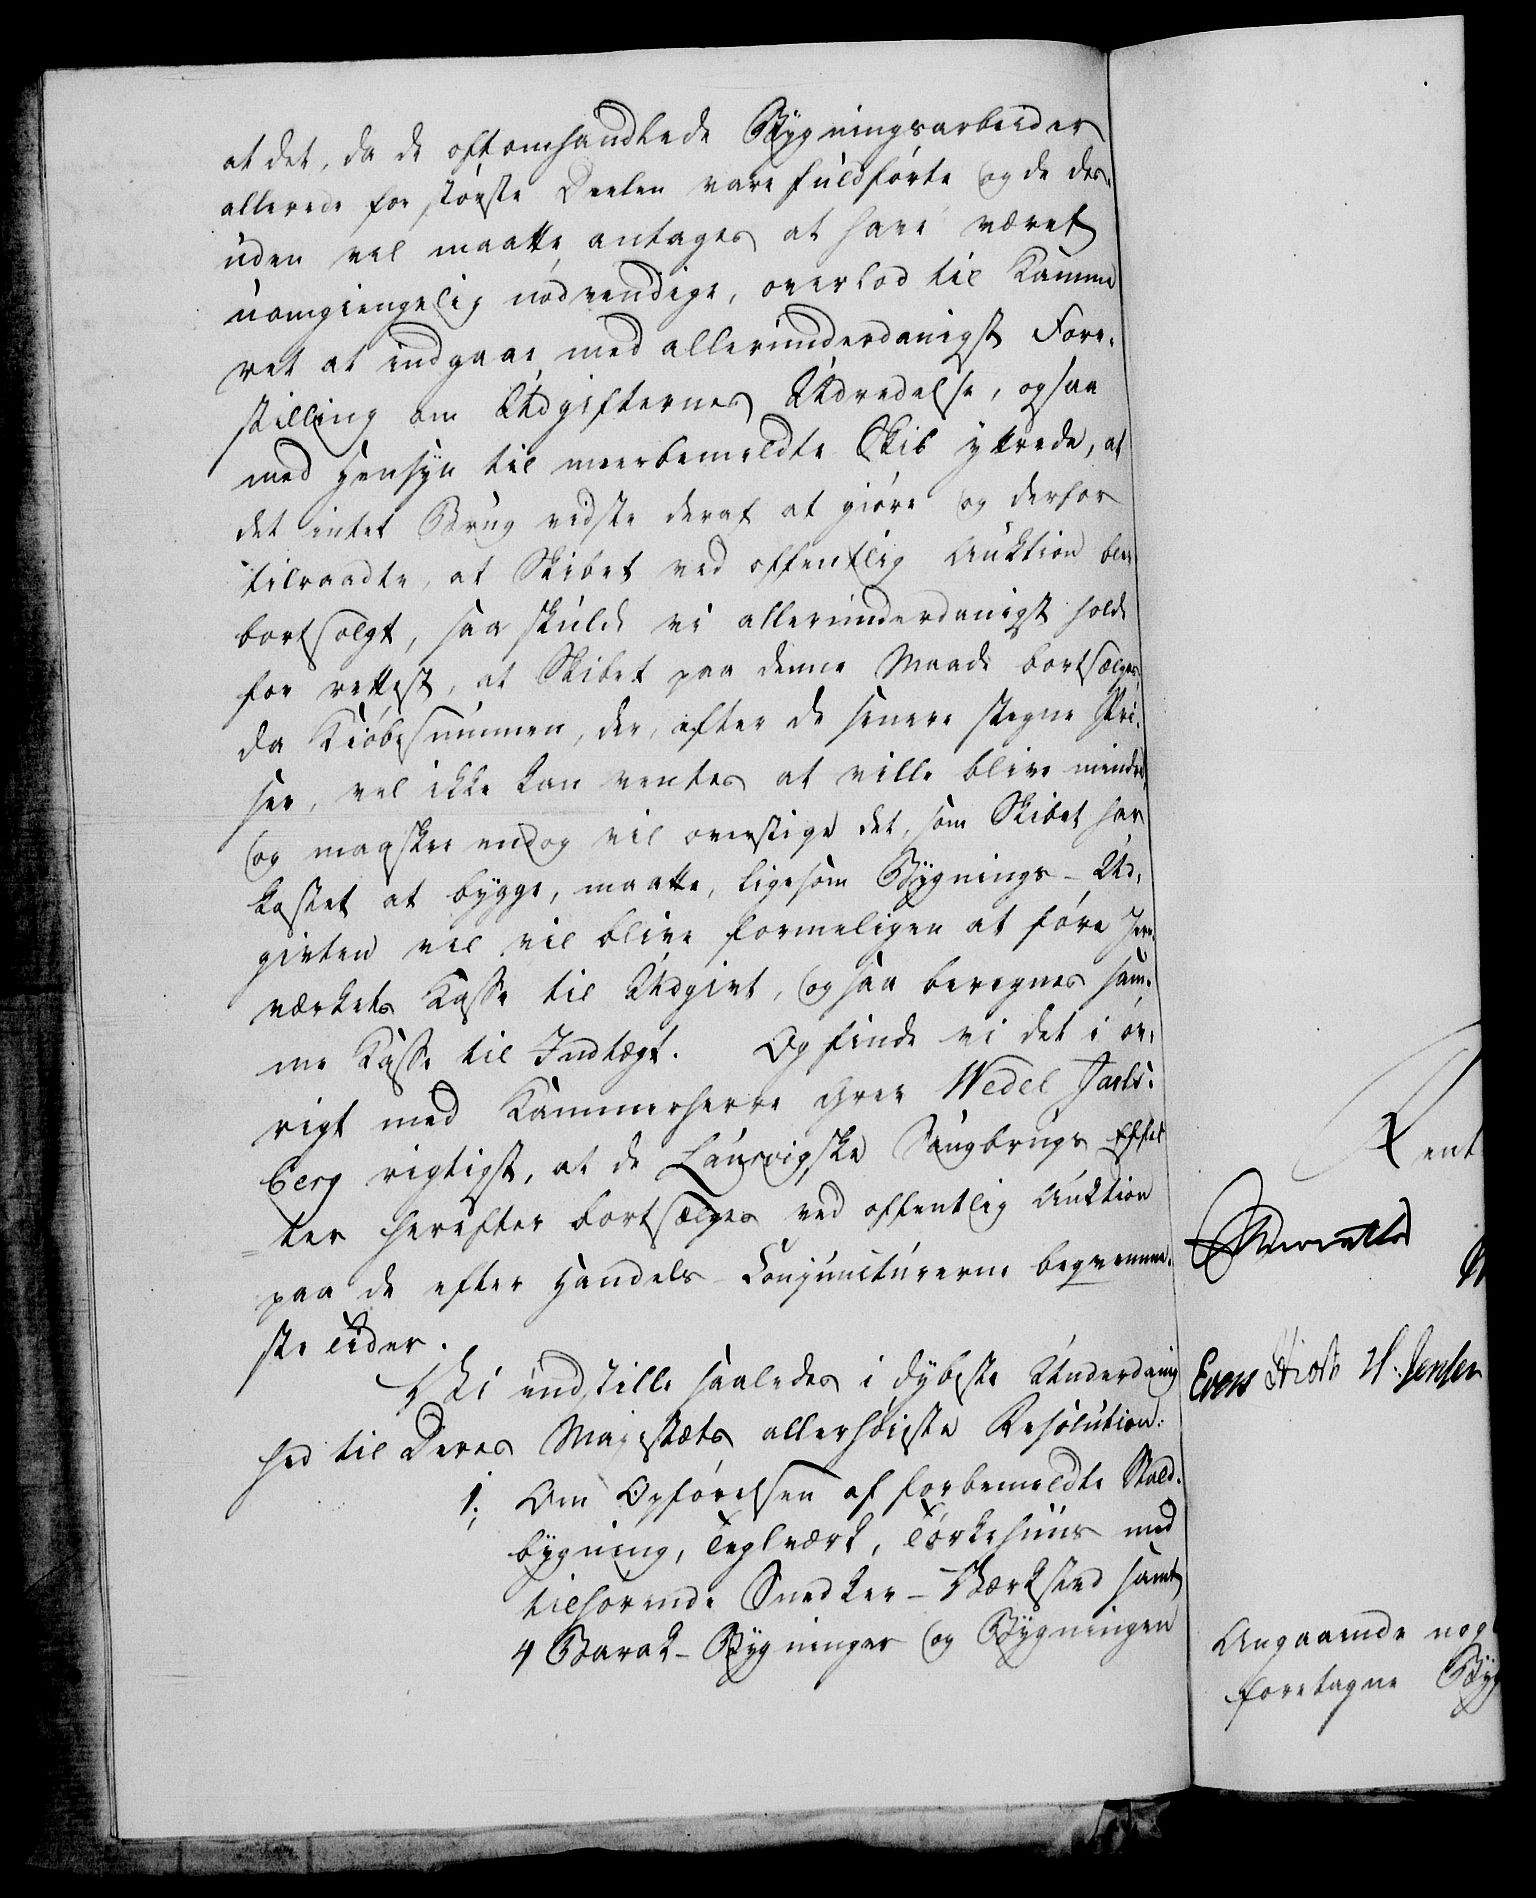 at det, da de oftomhandlede Bygningsarbeider
allerede for største Deelen vare fuldførte og de des-
uden vel maatte antages at have været
uomgiengelig nødvendige, overlod til Kamme
ret at indgaae med allerunderdanigst Fore-
stilling om Udgifternes Udredelse, ogsaa
med Hensyn til meerbemeldte Skib yttrede, at
det intet Brug vidste deraf at giøre og derfor
tilraadte, at Skibet ved offentlig Auktion blev
bortsolgt, saa skulde vi allerunderdanigst holde
for rettest, at Skibet paa denne Maade bortsælges,
da Kiøbesummen, der, efter de senere stegne Pri-
ser, vel ikke kan ventes at ville blive mindre,
og maaskee endog vil overstige det, som Skibet har
kostet at bygge, maatte, ligesom Bygnings-Ud-
givten vel vil blive formeligen at føre Jern-
værkets Kasse til Udgivt, ogsaa beregnes sam-
me Kasse til Indtægt. Og finde vi det i øv-
rigt med Kammerherre Grev Wedel Jarls-
berg rigtigst, at de Laurvigske Saugbrugs Effec
=ter herefter bortsælges ved offentlig Auktion
paa de efter Handels-Conjuncturerne beqvemme-
ste Tider.
Vi indstille saaledes i dybeste Underdanig
hed til Deres Majestæts allerhøieste Resolution:
1; Om Opførelsen af forbemeldte Stald-
bygning, Teglværk, Tørkehuus med
tilhørende Snedker-Værksted samt
4 Barak-Bygninger og Bygningen
Rent
Evers H. Jensen
Angaaende nog
foretagne Byg